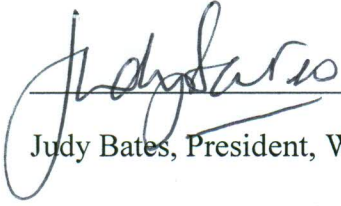 Judy Bates
Judy Bates, President, W